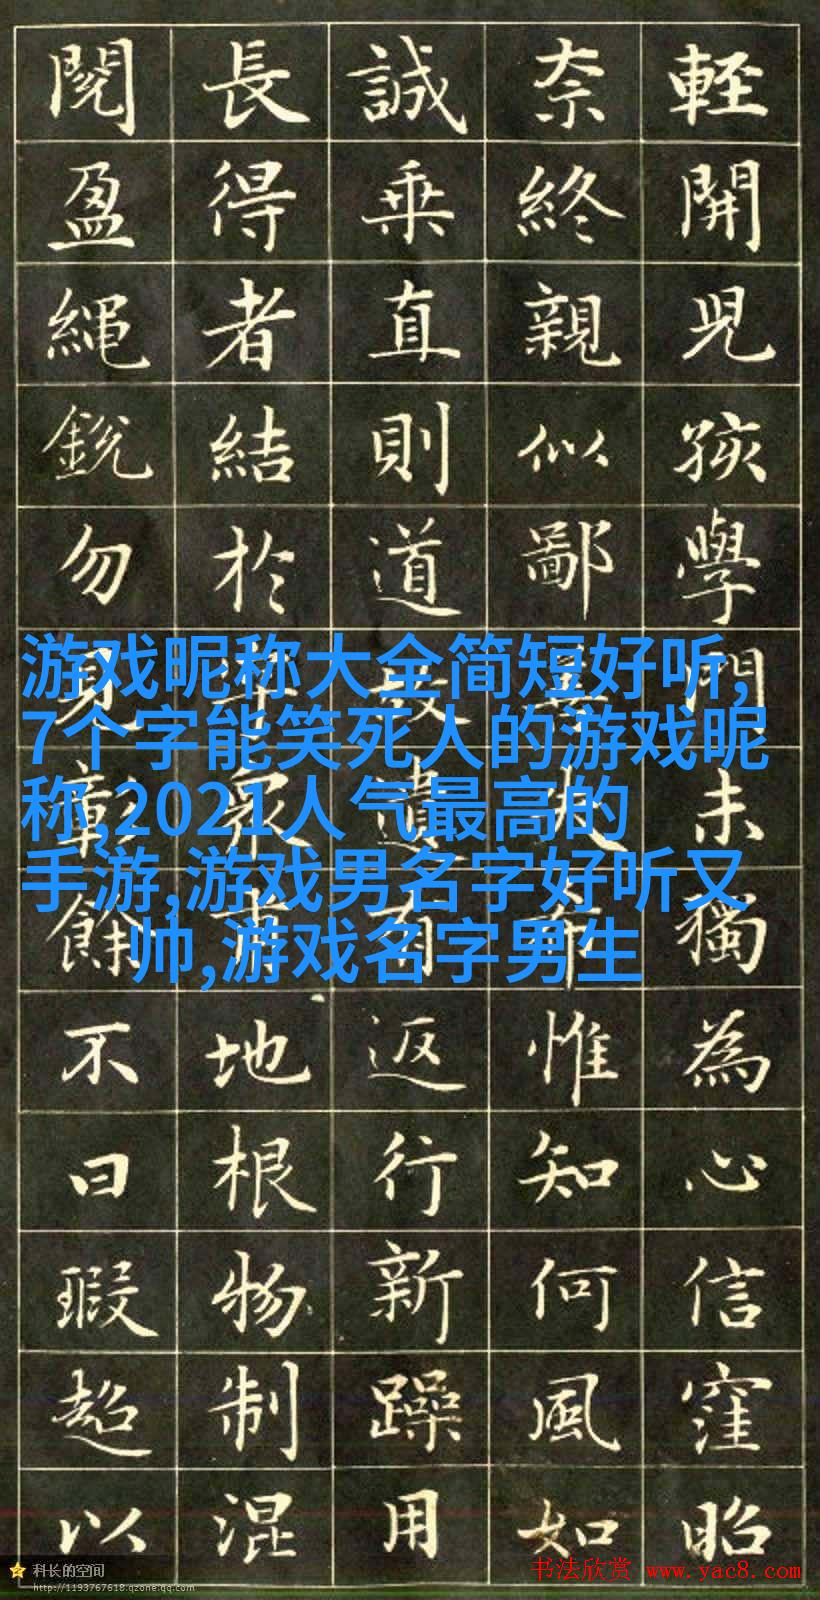 閱 長 誠 奈 輕
盈 得 乗 終 開
繩 者 直 親 児
銳 結 則 似 孩
勿 於 道 鄙 學
游戏昵称大全简短好听,
7个字能笑死人的游戏昵
称,2021人气最高的
手游,游戏男名字好听又
帅,游戏名字男生
見 敢 門
彰 衆 遺 夫 未
餘 而 獨
不 地 返 惟 為
曰 根 行 知 心
瑕 物 新 何 信
超 制 躁 風 窪
以 混 用 如 昭
科长的空间
http://1193767618.qzone.qq.com
书法欣赏 www.yac8.com